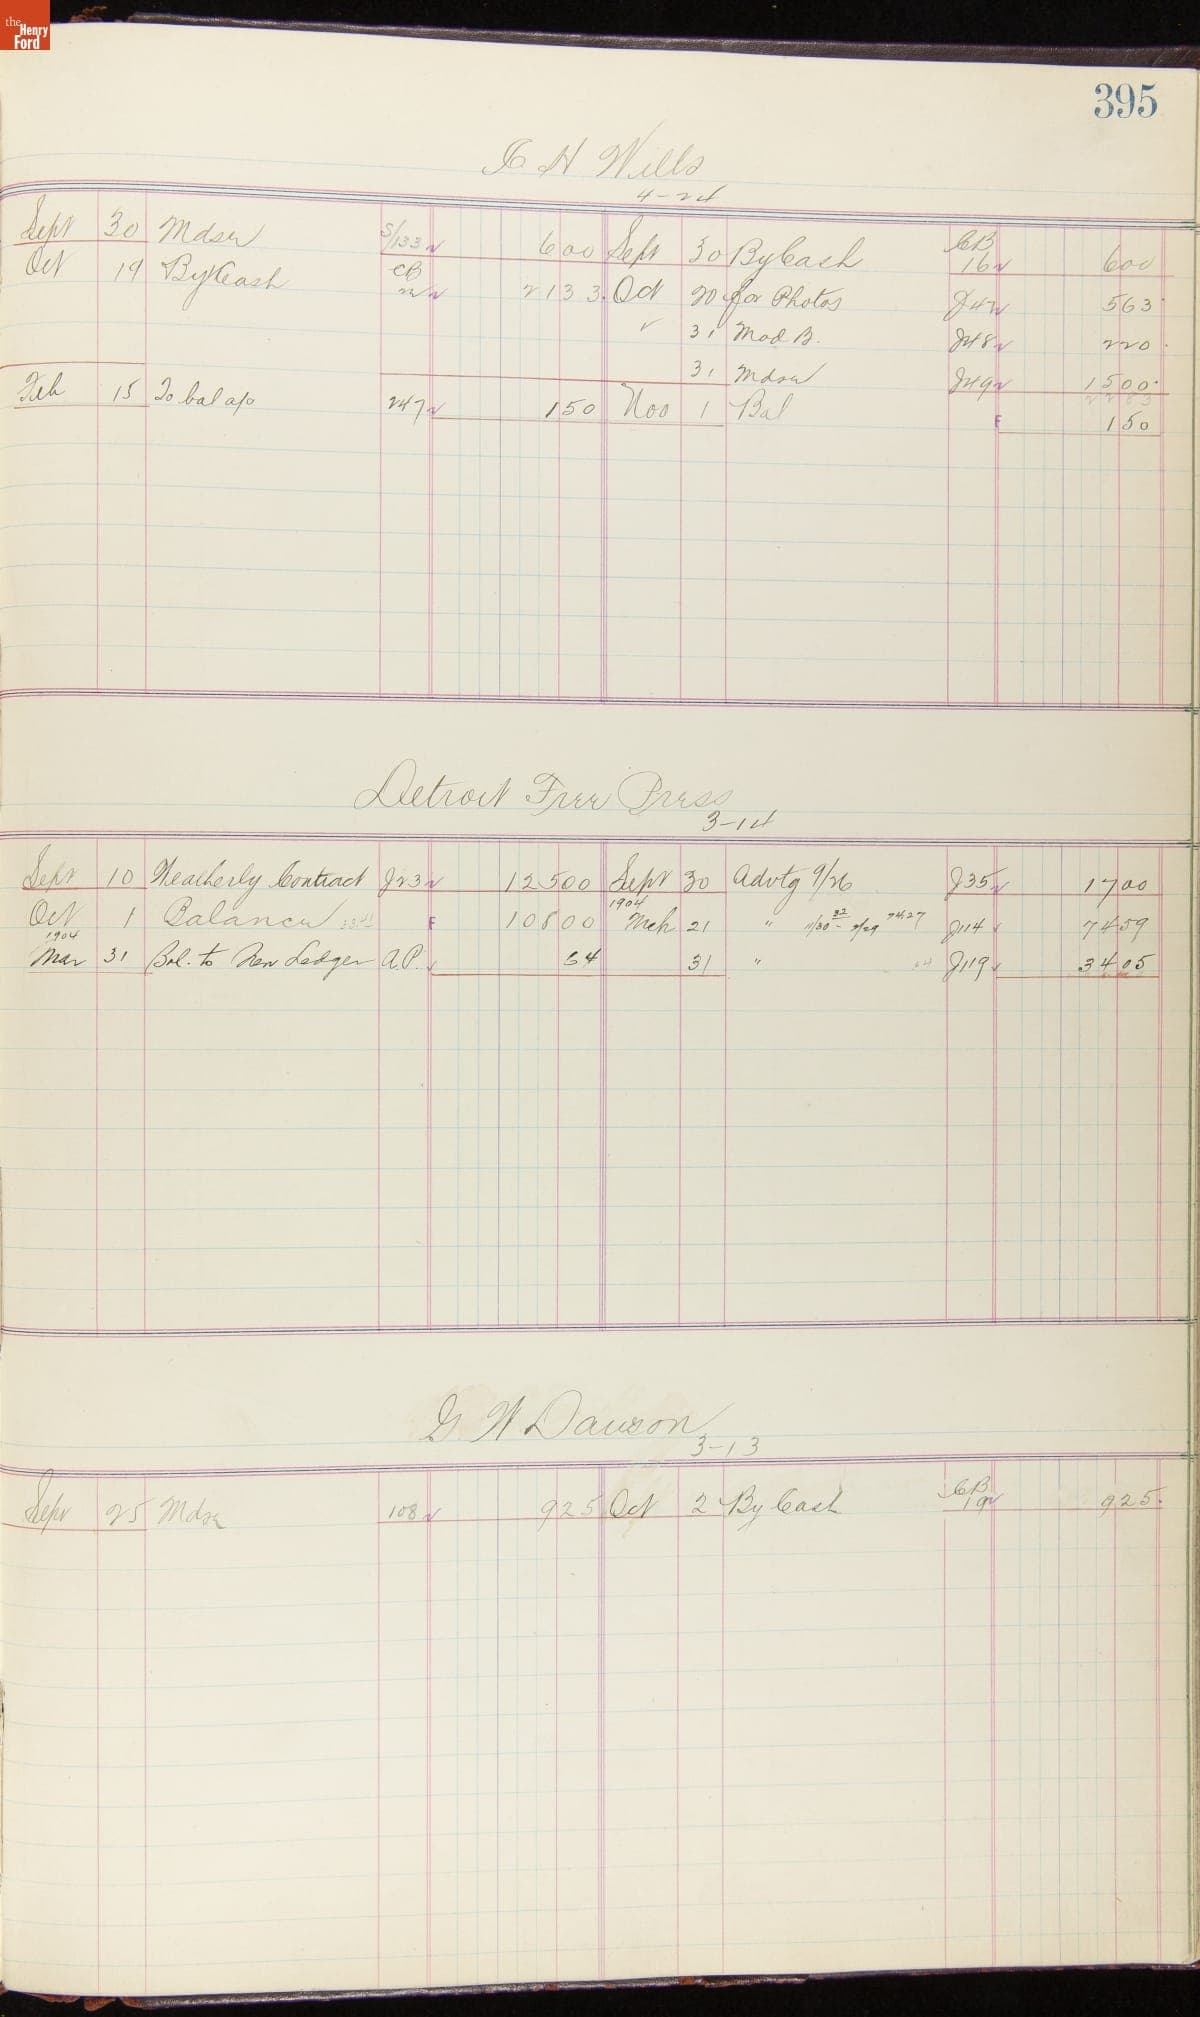 the Henry Ford
395
C H Wills
4-24
Sept 30 Mdse S/133 600 Sept 30 By Cash CB 16 600
Oct 19 By Cash CB 22 2133 Oct 20 for Photos J42 563
" 31 Mod B. J48 220
31 Mdse J49 1500
2283
Feb 15 To bal a/c 247 150 Nov 1 Bal F 150
Detroit Free Press
3-14
Sept 10 Weatherly Contract J23 12500 Sept 30 Advtg 9/26 J35 1700
Oct 1 Balance 33.41 F 10800 1904 Mch 21 " 11/30 32 - 2/29 74.27 J114 7459
1904 Mar 31 Bal. to New Ledger A.P. 64 31 " 64 J119 3405
G W Dawson
3-13
Sept 25 Mdse 108 925 Oct 2 By Cash CB 19 925